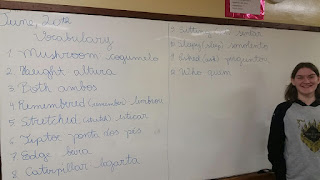 June, 2012
Vocabulary
1 Mushroom cogumelo
2 Height altura
3 Both ambos
4 Remembered (remember) lembrou
5 Stretched (stretch) esticar
6 Tiptoe ponta dos pés
7 Edge beira
8 Caterpillar lagarta
sentar
(sleep) sonolento
(ask) perguntou
Who quem